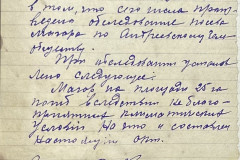 в том, что сего числа произ-
ведено обследование посева
Магара по Андреевскому сель
При обследовании установ
лено следующие:
Магар на площади 25 га
погиб вследствии не благо-
приятных климатических
условий на что и составлен
настоящий акт.